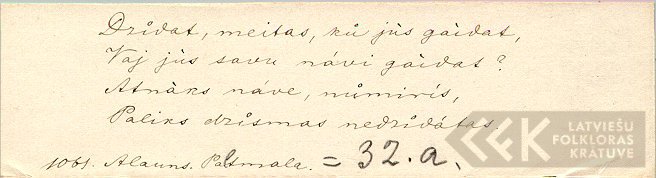 Dzīdat, meitas, kū jūs gàidat,
Vaj jūs savu nāvi gàidat?
Atnàks nàve, nůmirís,
Paliks dzismas nedzīdátas.
1061. Alauns. Patmala. = 32.a.
LATVIEŠU
FOLKLORAS
KRATUVE